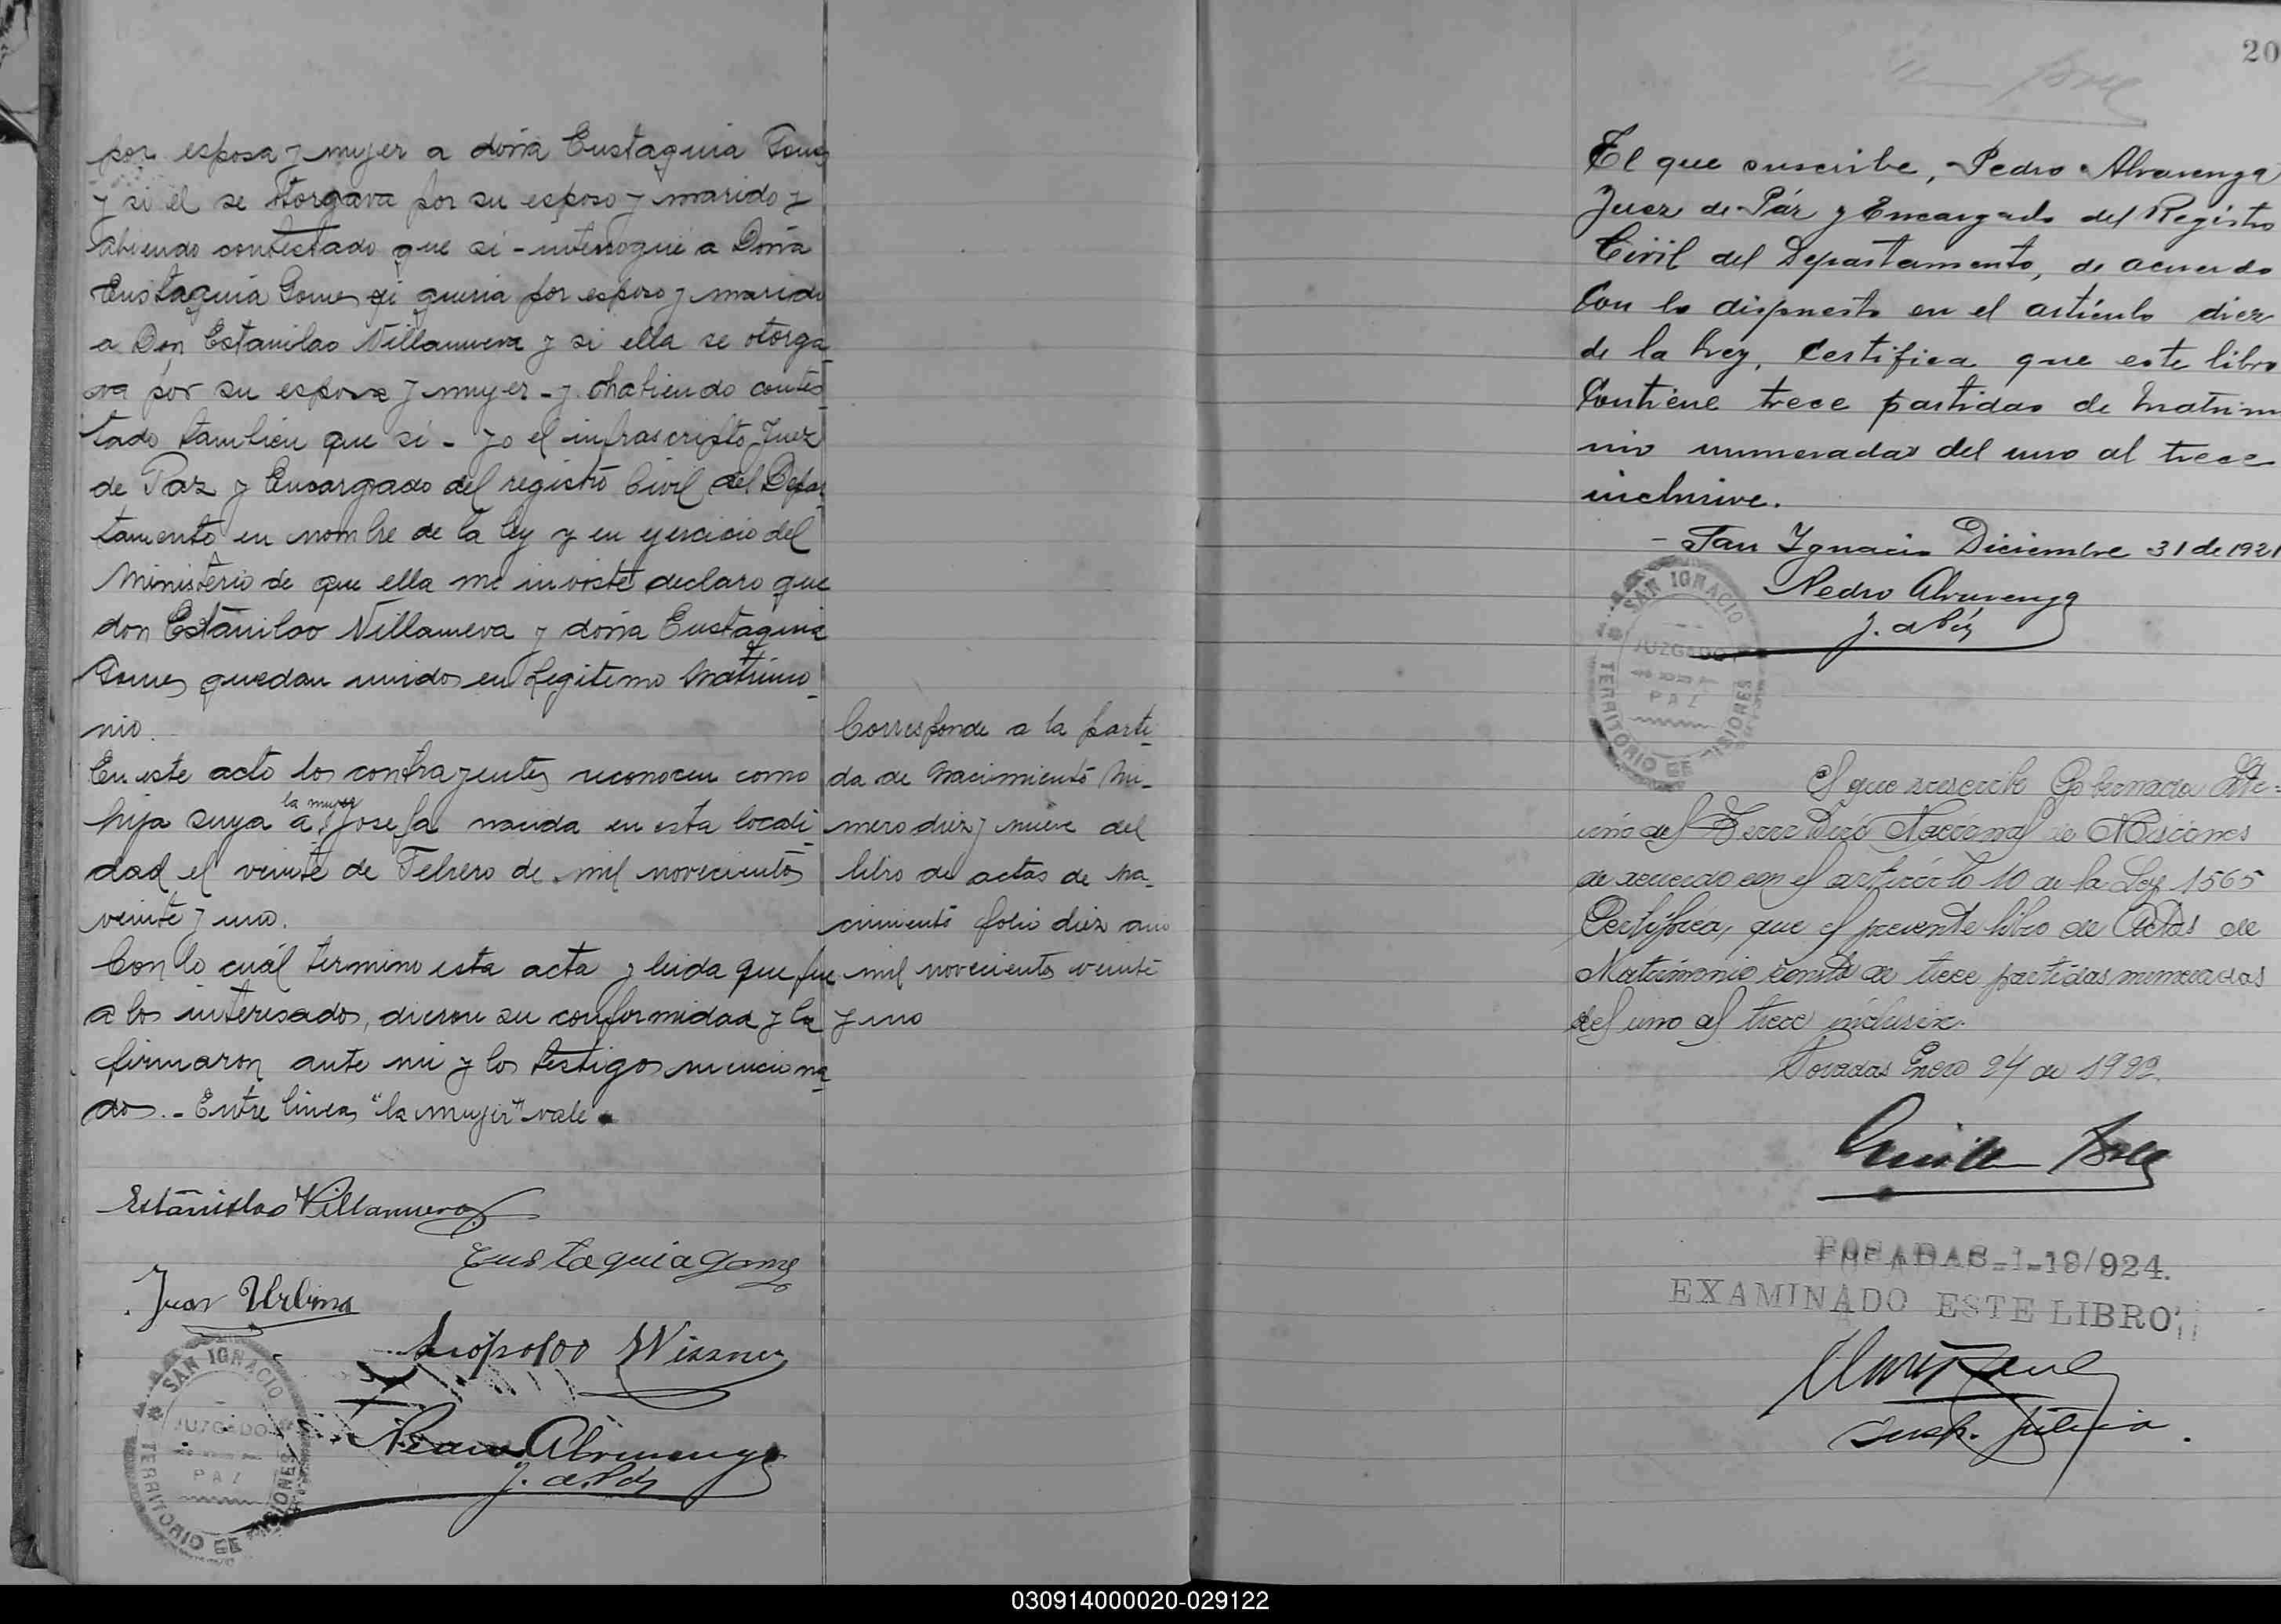 por esposa y mujer a doña Eustaquia Gomez
y si el se otorgava por su esposo y marido y
abiendo contestado que si - interrogué a Doña
Eustaquia Gomes si queria por esposo y marido
a Don Estanilao Villanueva y si ella se otorga_
va por su esposa y mujer - y habiendo contes_
tado tambien que si - yo el infrascripto Juez
de Paz y Encargado del registro Civil del Depar
tamento en nombre de la ley y en ejercicio del
Ministerio de que ella me inviste declaro que
don Estanilao Villanueva y doña Eustaquia
Gomes quedan unidos en legitimo Matrimo_
nio.
En este acto los contrayentes reconocen como
la mujer
hija suya a Josefa nacida en esta locali_
dad el veinte de Febrero de mil novecientos
veinte y uno.
Con lo cuál termino esta acta y leida que fue
a los interesados, dieron su conformidad y la
firmaron ante mi y los testigos menciona_
dos. - Entre lineas "la mujer" vale.
Corresponde a la parti_
da de Nacimiento Nu_
mero diez y nueve del
libro de actas de Na_
cimiento folio diez año
mil novecientos veinte
y uno
Estanislao Villanueva
Eustaquia Gomez
Juan Urbina
Leopoldo
Pedro Alvarenga
J. de Páz
SAN IGNACIO
JUZGADO
PAZ
TERRITORIO DE MISIONES
20
El que suscribe, Pedro Alvarenga
Juez de Páz y Encargado del Registro
Civil del Departamento, de acuerdo
Con lo dispuesto en el artículo diez
de la Ley, Certifica que este libro
Contiene trece partidas de Matrimo
nio numeradas del uno al trece
inclusive.
- San Ignacio Diciembre 31 de 1921
Pedro Alvarenga
J. de Páz
SAN IGNACIO
JUZGADO
PAZ
TERRITORIO DE MISIONES
El que suscribe Gobernador Inte=
rino del Territorio Nacional de Misiones
de acuerdo con el artículo 10 de la Ley 1565
Certifica, que el presente libro de Actas de
Matrimonio consta de trece partidas numeradas
del uno al trece inclusive.
Posadas Enero 24 de 1922.
POSADAS-1-18/924.
EXAMINADO ESTE LIBRO
Insp.
030914000020-029122